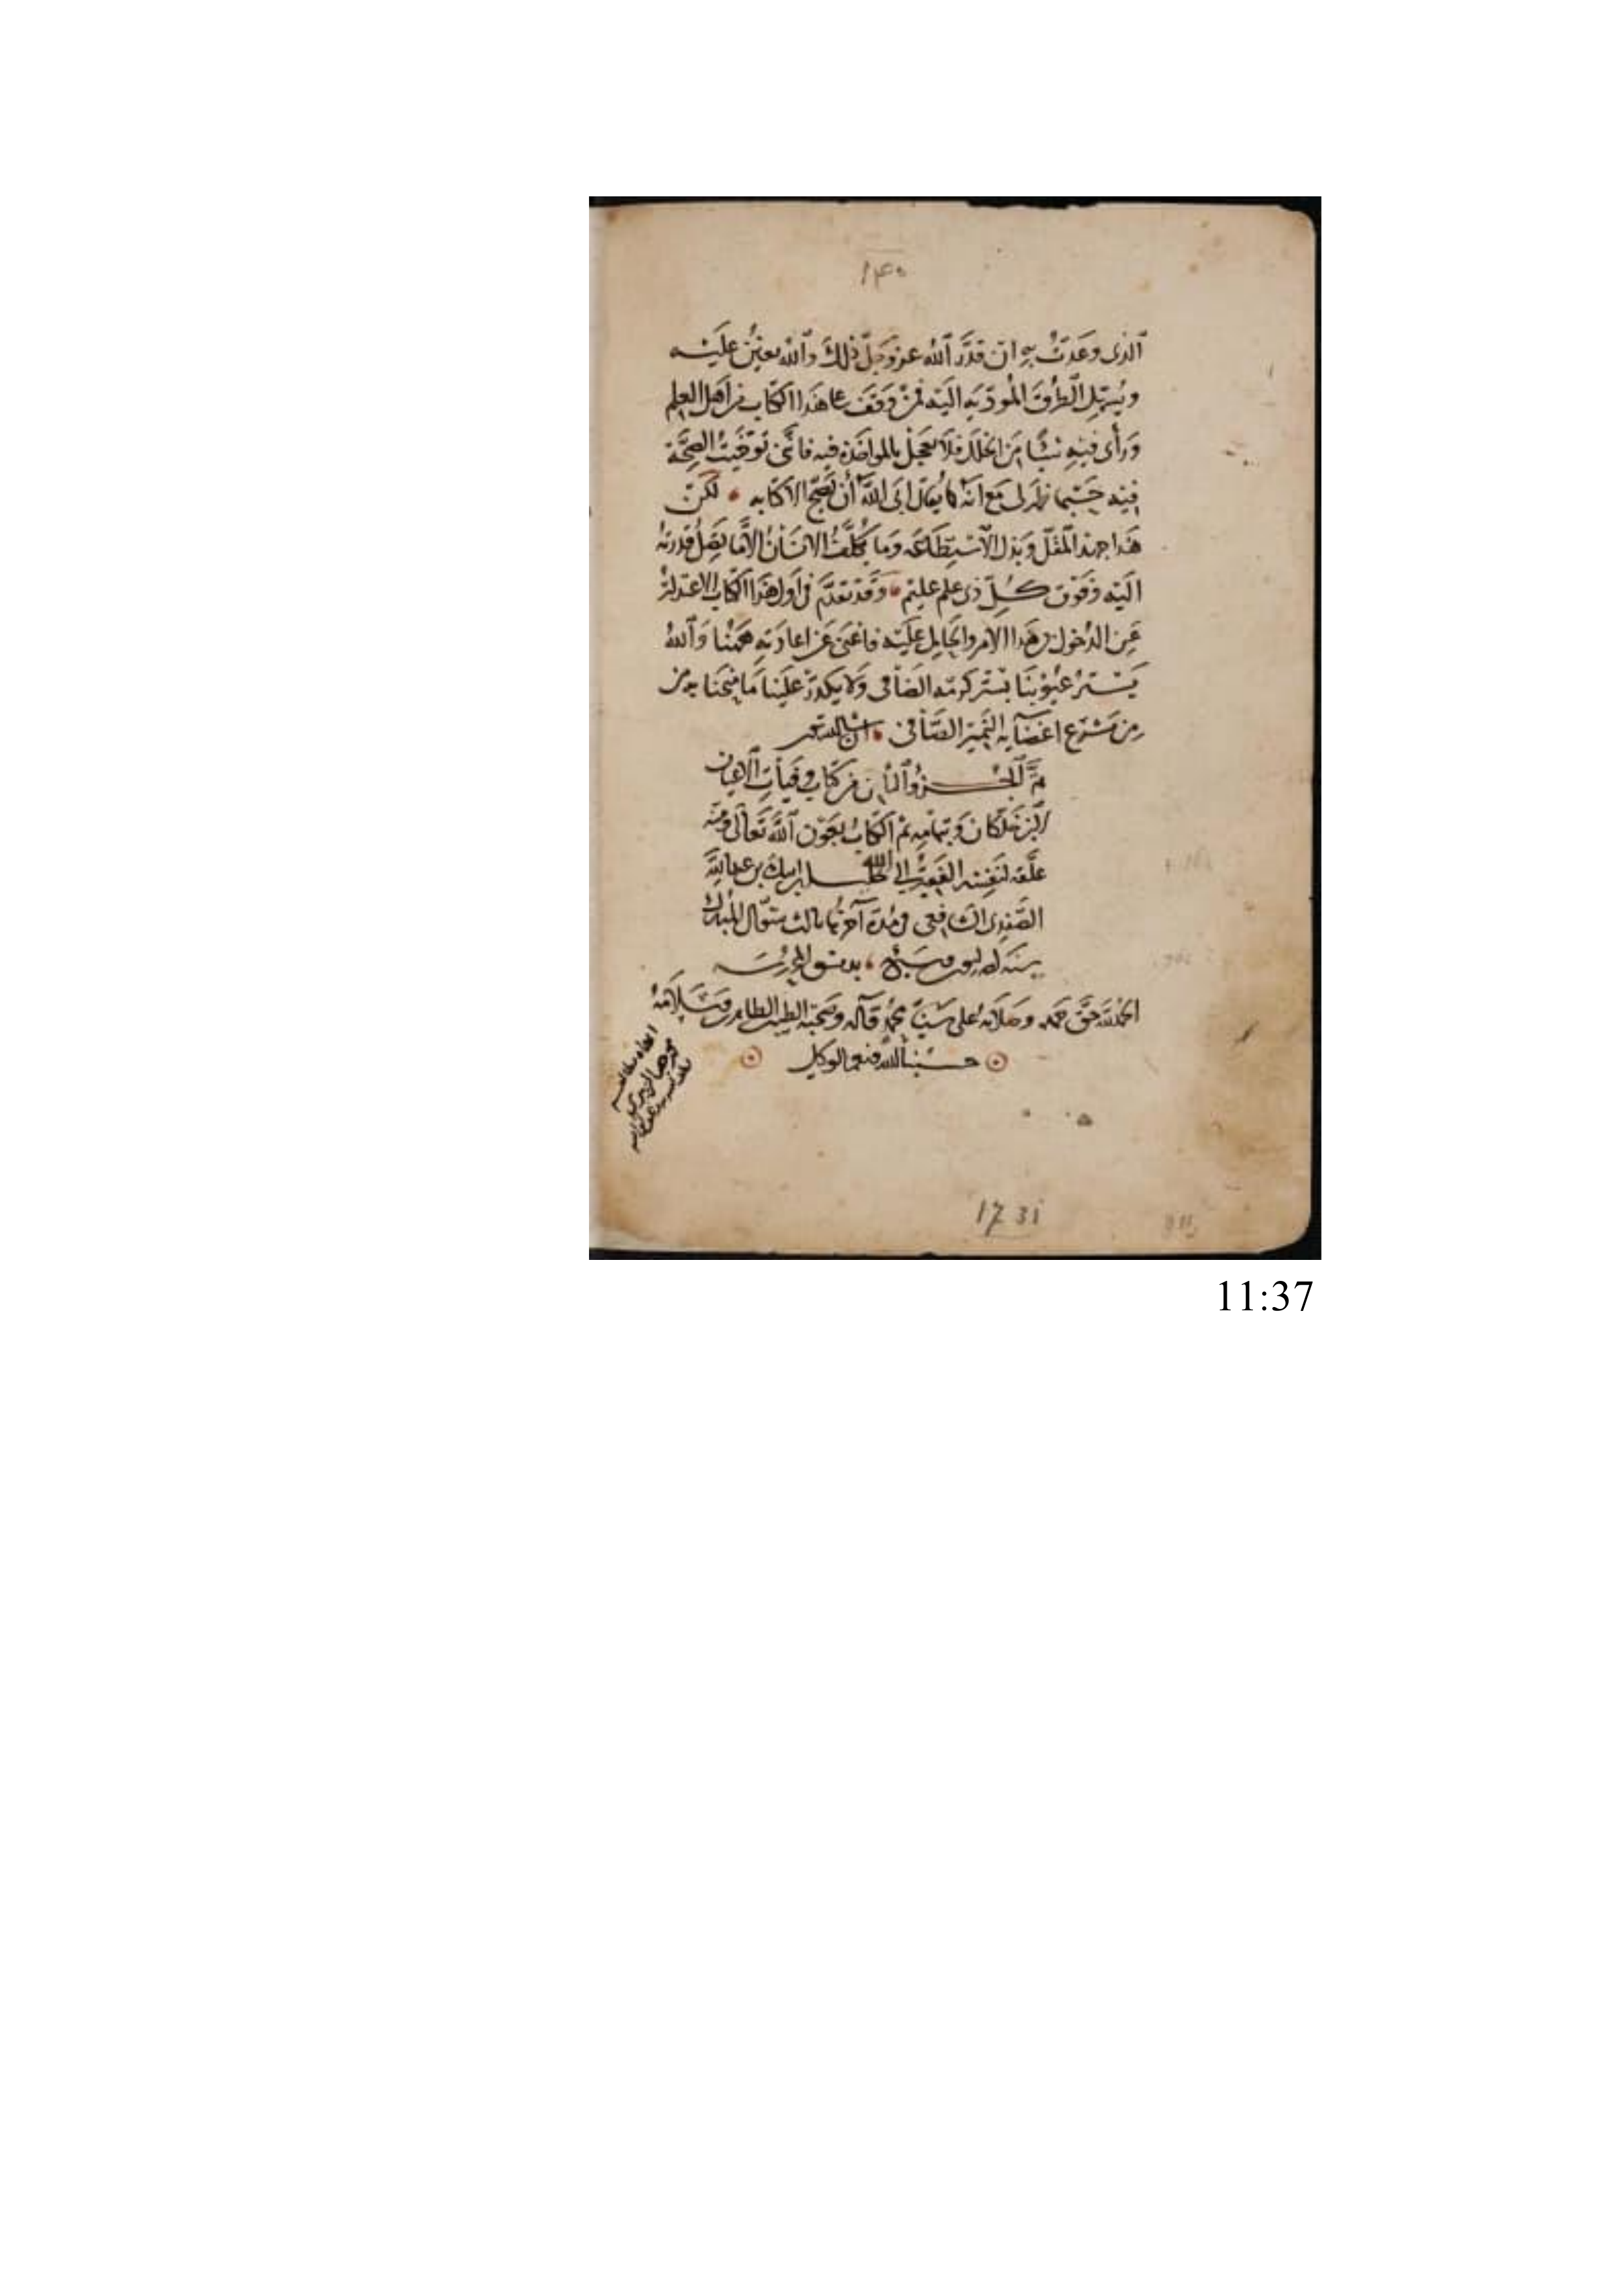 ١٣٥
الذى وعدت به ان قدَّر الله عز وجلّ ذلك والله يعين عليه
ويسهل الطرق المودّيه اليه فمن وقف على هذا الكتاب من اهل العلم
ورأى فيه شيئا من الخلل فلا يعجل بالمواخذة فيه فانى توخّيت الصحّة
فيه حسبما ظهر لى مع انه كما يقال ابى الله أن يصح الا كتابه لكن
هذا جهد المقل وبذل الاستطاعه وما يكلف الانسان الا ما يصل قدرته
اليه وفوق كل ذى علم عليم وقد تقدّم فى اول هذا الكتاب الاعتذار
عن الدخول فى هذا الامر والحامل عليه فاغنى عن اعادته ههنا والله
يستر عيوبنا بستر كرمه الضافى ولا يكدر علينا ما منحنا به من
من مشرع اغضايه النمير الصافى ان شا الله تعالى
تم الجزو من كتاب وفيات الاعيان
لابن خلكان وبتمامه تم الكتاب بعون الله تعالى ومنه
علقه لنفسه الفقير الى الله خليل بن ايبك بن عبد الله
الصفدى الشافعى فى مدة آخرها ثالث شوال المبارك
سنه بدمشق المحروسه
الحمد لله حق حمده وصلاته على سيدنا محمد وآله وصحبه الطيبين الطاهرين وسلامه
حسبنا الله ونعم الوكيل
1731
11:37